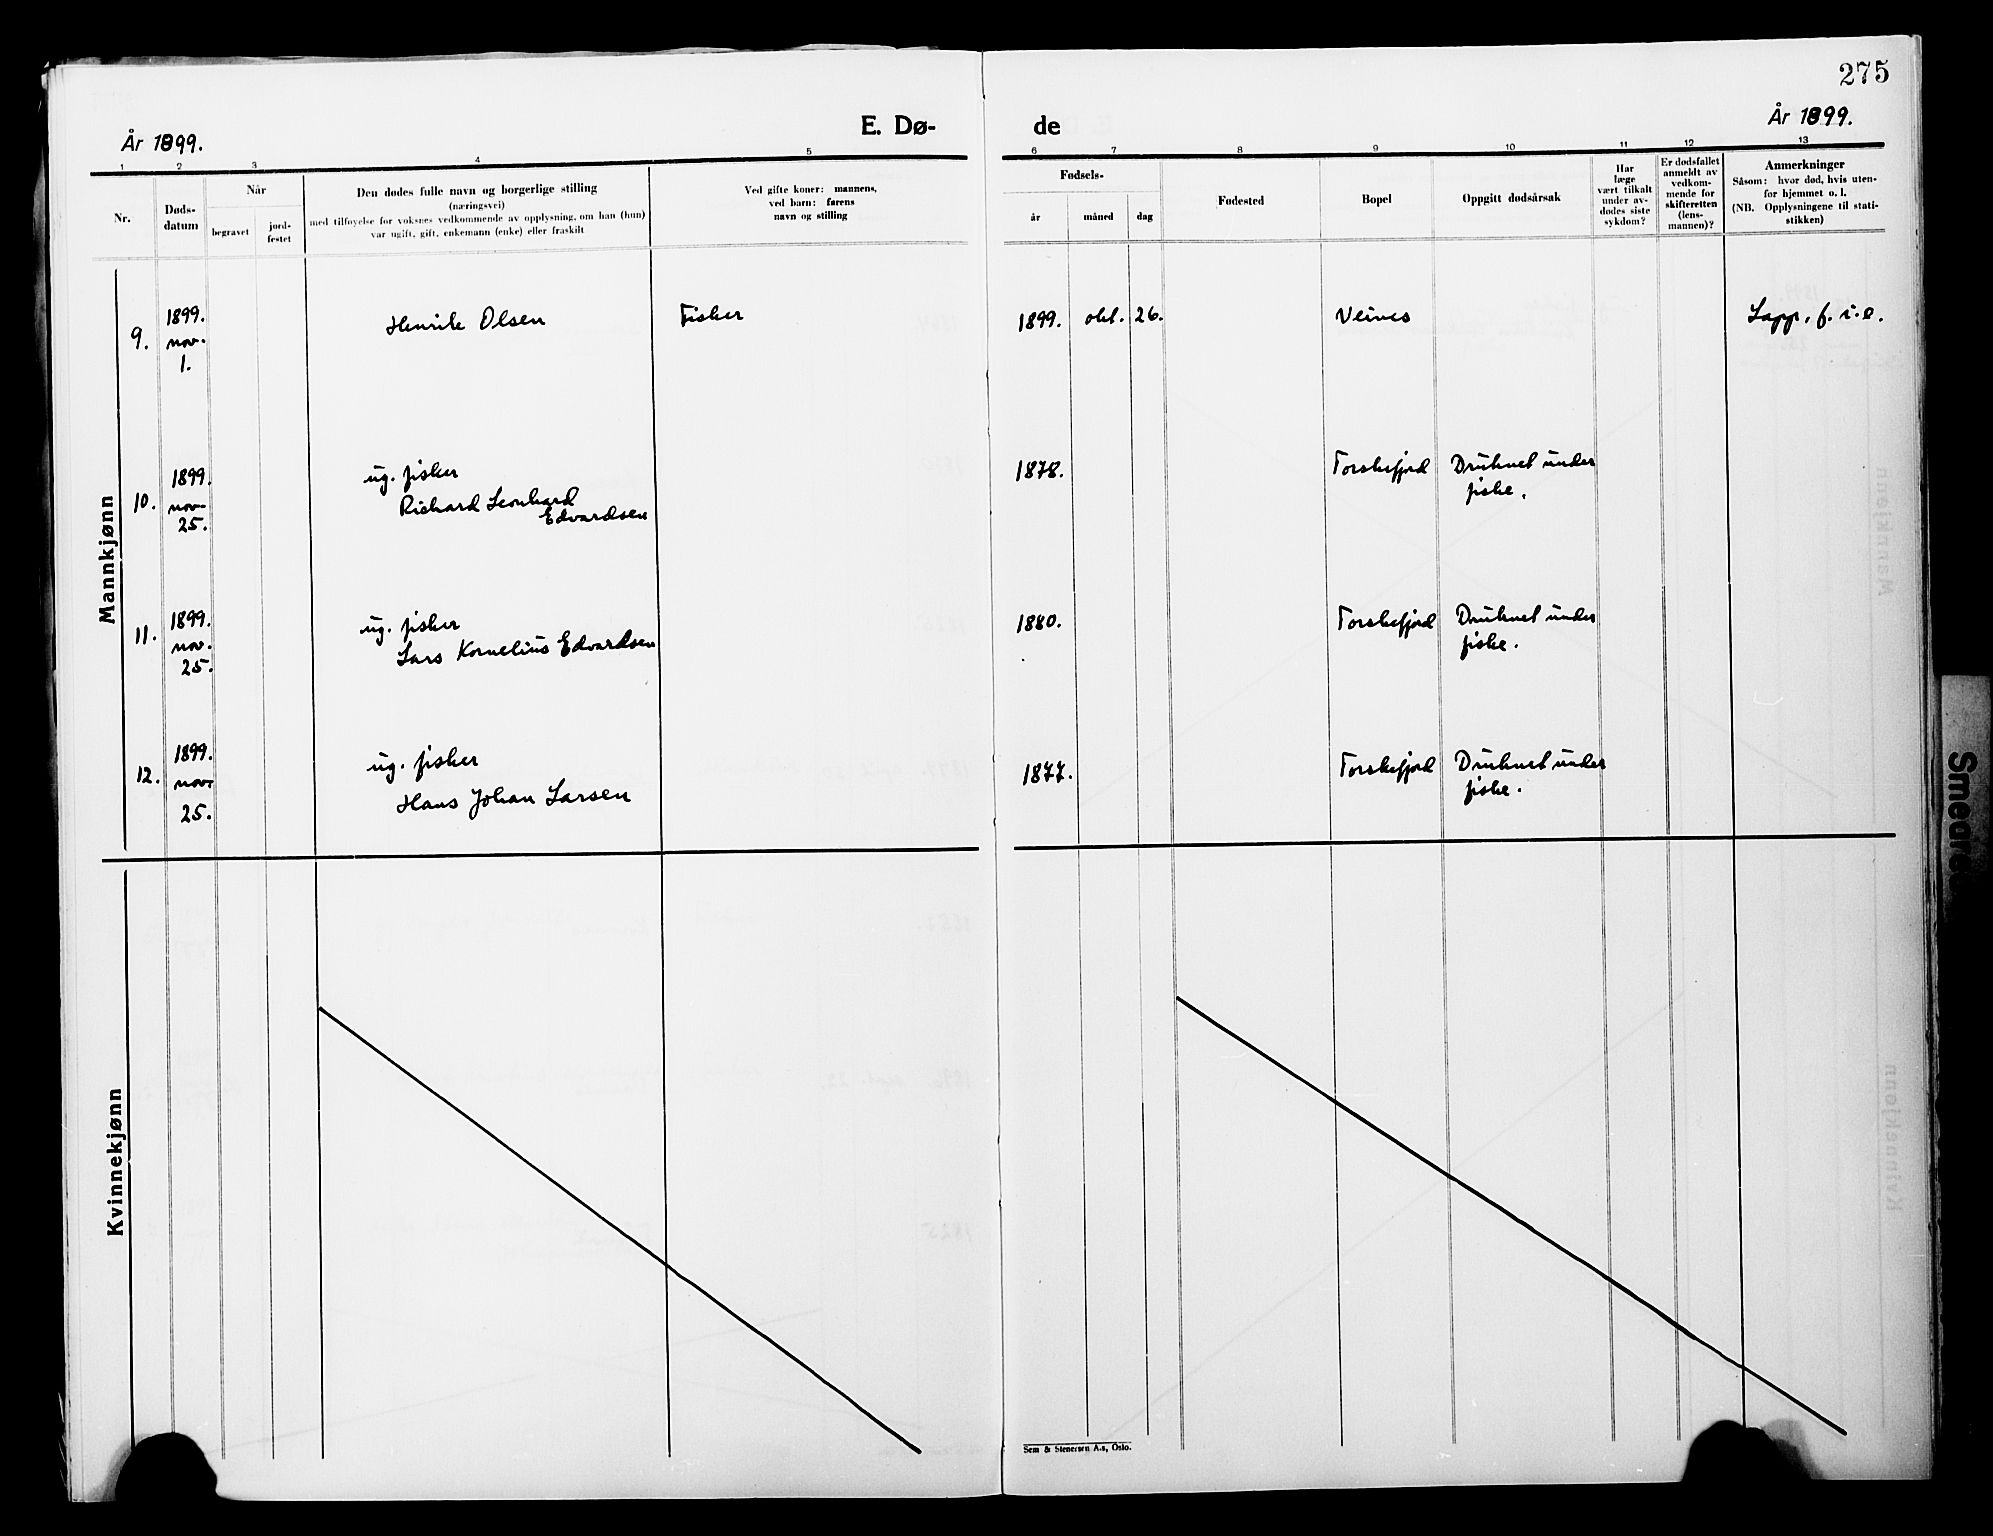 275
År 1899.
E. Dø-
de
År 1899.
1 2 3 4 5 6 7 8 9 10 11 12 13
Nr.
Døds-
datum
Når
begravet
jord-
festet
Den dødes fulle navn og borgerlige stilling
(næringsvei)
med tilføyelse for voksnes vedkommende av opplysning, om han (hun)
var ugift, gift, enkemann (enke) eller fraskilt
Ved gifte koner: mannens,
ved barn: farens
navn og stilling
Fødsels-
år
måned
dag
Fødested
Bopel
Oppgitt dødsårsak
Har
læge
vært tilkalt
under av-
dødes siste
sykdom?
Er dødsfallet
anmeldt av
vedkom-
mende for
skifteretten
(lens-
mannen)?
Anmerkninger
Såsom: hvor død, hvis uten-
for hjemmet o. l.
(NB. Opplysningene til stati-
stikken)
Mannkjønn
9.
1899.
nov.
1.
Henrik Olsen
Fisker
1899. okt. 26.
Veines
Lapp. f. i. e.
10.
1899.
nov.
25.
ug. fisker
Richard Leonhard
Edvardsen
1878.
Torskefjord
Druknet under
fiske.
11.
1899.
nov.
25.
ug. fisker
Lars Kornelius Edvardsen
1880.
Torskefjord
Druknet under
fiske.
12.
1899.
nov.
25.
ug. fisker
Hans Johan Larsen
1877.
Torskefjord
Druknet under
fiske.
Kvinnekjønn
Sem & Stenersen A.s, Oslo.